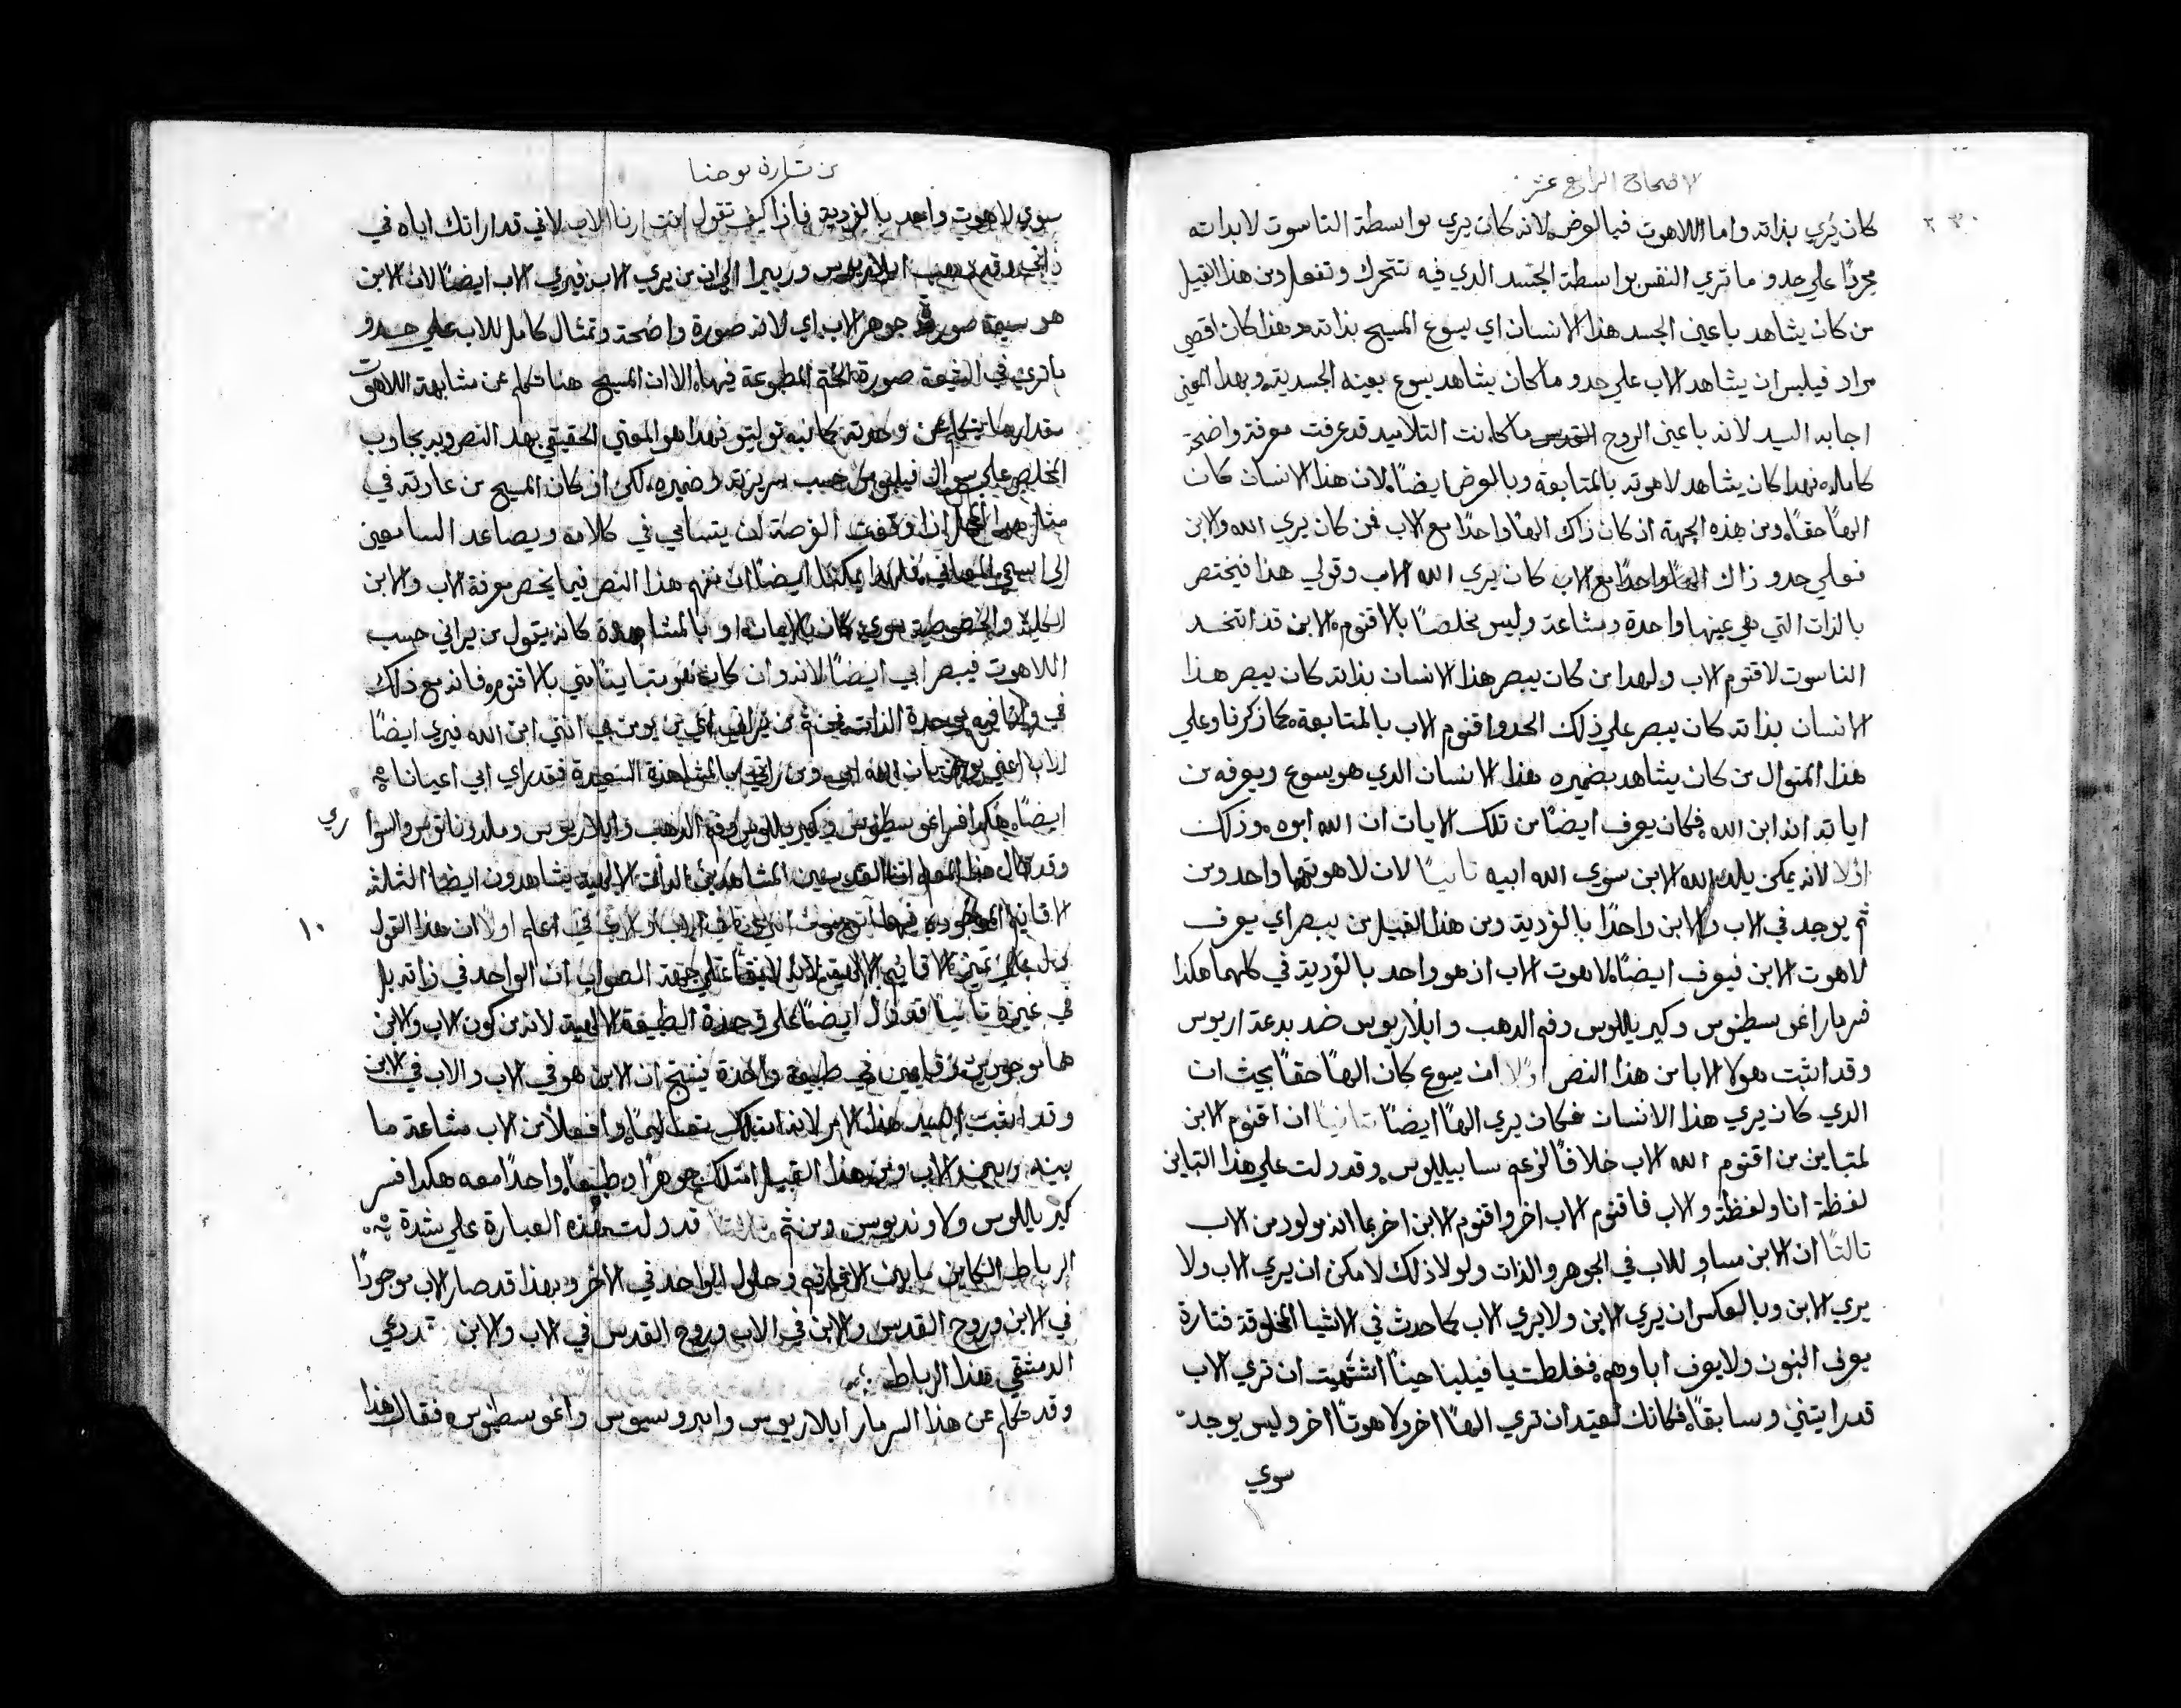 الاصحاح الرابع عشر
٢٣٠
كان يُري بذاته واما اللاهوت فبالعرض لانه كان يري بواسطة الناسوت لا بذاته
مجردًا علي حدو ما تري النفس بواسطة الجسد الدي فيه تتحرك وتفعل ومن هذا القبيل
من كان يشاهد باعين الجسد هذا الانسان اي يسوع المسيح بذاته وهذا كان اقصي
مراد فيلبس ان يشاهد الاب علي حدو ما كان يشاهد يسوع بعينه الجسديته وبهدا المعني
اجابه السيد لانه باعين الروح القدس ما كانت التلاميد قد عرفت معرفة واضحة
كامله فهدا كان يشاهد لاهوته بالمتابعة وبالعرض ايضًا لان هذا الانسان كان
الهًا حقًا ومن هذه الجهة اذ كان ذاك الهًا واحدًا مع الاب فمن كان يري الله والابن
فعلي حدو ذاك الهًا واحدًا مع الاب كان يري الله الاب وقولي هذا فيختص
بالذات التي هي عينها واحدة ومشاعة وليس مخلصًا بالاقنوم الابن قد اتخد
الناسوت لا قنوم الاب ولهدا من كان يبصر هذا الانسان بذاته كان يبصر هذا
الانسان بذاته كان يبصر علي ذلك الحدو اقنوم الاب بالمتابعة كما ذكرنا وعلي
هذا المنوال من كان يشاهد بضميره هذا الانسان الدي هو يسوع ويعرفه من
اياته انه ابن الله فكان يعرف ايضًا من تلك الايات ان الله ابوه وذلك
اولا لانه يمكن يلد الله الابن سوي الله ابيه ثانيًا لان لاهوتهما واحد ومن
ثم يوجد في الاب والابن واحدًا بالفردية ومن هذا القبيل من يبصر اي يعرف
لاهوت الابن فيعرف ايضًا لاهوت الاب اذ هو واحد بالفردية في كلهما هكدا
فسر مار اغوسطينوس وكيريللوس وفم الدهب وايلاريوس ضد بدعة اريوس
وقد اثبت هولا الابا من هذا النص اولا ان يسوع كان الهًا حقًا بحيث ان
الدي كان يري هذا الانسان فكان يري الهًا ايضًا ثانيًا ان اقنوم الابن
لمتباين من اقنوم الله الاب خلافًا لزعم سابيلليوس وقد دلت علي هذا التباين
لفظة انا ولفظة والاب فاقنوم الاب اخر واقنوم الابن اخر بما انه مولود من الاب
ثالثًا ان الابن مساو للاب في الجوهر والذات ولولا ذلك لامكن ان يري الاب ولا
يري الابن وبالعكس ان يري الابن ولا يري الاب كما حدث في الاشيا المخلوقة فتارة
يعرف البنون ولا يعرف اباوهم فغلطت يا فيلبا حينًا اشتهيت ان تري الاب
قد رايتني وسابقًا فكانك تعتيد ان تري الهًا اخر ولاهوتًا اخر وليس يوجد
سوي
من بشارة يوحنا
سوي لاهوت واحد بالفردية فاذًا كيف تقول انت ارنا الاب لاني قد اراتك اياه في
ذاتي وقد ذهب ايلاريوس وربيرا الي ان من يري الابن فيري الاب ايضًا لان الابن
هو سيمة صورة جوهر الاب اي لانه صورة واضحة وتمثال كامل للاب علي حدو
ما تري في الشمعة صورة الختم المطبوعة فيها الا ان المسيح هنا تكلم عن مشابهة اللاهوت
مقدار ما يتكلم عن وحدته كما نبه توليتو فهدا هو المعني الحقيقي بهد النص وبه يجاوب
المخلص علي سوال فيلبوس حسب سريرته وضميره لكن اذ كان المسيح من عادته في
مثل هدا المحل اذا وقعت الفرصة لان يتسامي في كلامه ويصاعد السامعين
الي اسمي المعاني فلهدا يمكننا ايضًا ان نفهم هذا النص فيما يخص معرفة الاب والابن
الكلية والخصوصية سوي كان بالايمان او بالمشاهدة كانه يقول من يراني حسب
اللاهوت فيبصر ابي ايضًا لانه وان كان هو متباينًا مني بالاقنوم فانه مع ذلك
في وانا فيه بوحدة الذات فمن ثم من يراني اي من يومن بي انني ابن الله فيري ايضًا
الاب اعني يومن بان الله ابي ومن راني بالمشاهدة السعيدة فقد راي ابي اعيانا
ايضًا هكدا فسر اغوسطينوس وكيريللوس وفم الدهب وايلاريوس وملدوناتوس والسوا
ري
وقد قال هذا المعلم ان القديسين المشاهدين الذات الالهية يشاهدون ايضا الثلثة
الاقانيم الموجودة فيها اتومن اني في الاب والاب في اعلم اولًا ان هذا القول
١٠
يدل علي تميز الاقانيم الالهية لانه لا يقال علي جهة الصواب ان الواحد في ذاته بل
في غيره ثانيًا قد دل ايضًا علي وحدة الطبيعة الالهية لانه من كون الاب والابن
هما موجودين قايمين في طبيعة واحدة ينتج ان الابن هو في الاب والاب في الابن
وقد اثبت السيد هذا الامر لانه امتلك تعاليمًا وافعالًا من الاب مشاعة ما
بينه وبين الاب ومن هذا القبيل امتلك جوهرًا وطبعًا واحدًا معه هكدا فسر
كيريللوس ولاونديوس ومن ثم ثالثًا قد دلت هذه العبارة علي شدة
الرباط الكاين ما بين الاقانيم وحلول الواحد في الاخر وبهذا قد صار الاب موجودًا
في الابن وروح القدس والابن في الاب وروح القدس في الاب والابن قد دعي
الدمشقي هذا الرباط
وقد تكلم عن هذا السر مار ايلاريوس وامبروسيوس واغوسطينوس فقال هذا